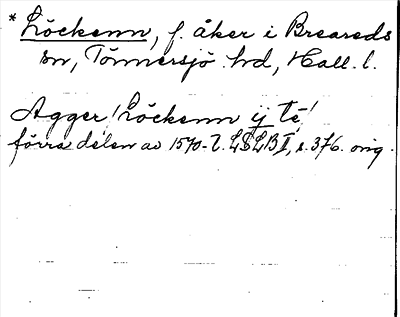 * Löckenn, f. åker i Breareds
sn, Tönnersjö hd, Hall. l.
Agger! Löckenn ij te!
förra delen av 1570-t. LSLB II, s. 376. orig.